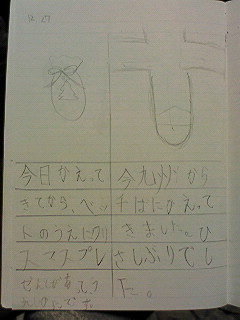 今日かえって
きてなら、ベッ
トのうえにクリ
スマスプレ
ぜんとがあってう
れしかったです
今九州から
千ばにかえって
きました。ひ
さしぶりでし
た。